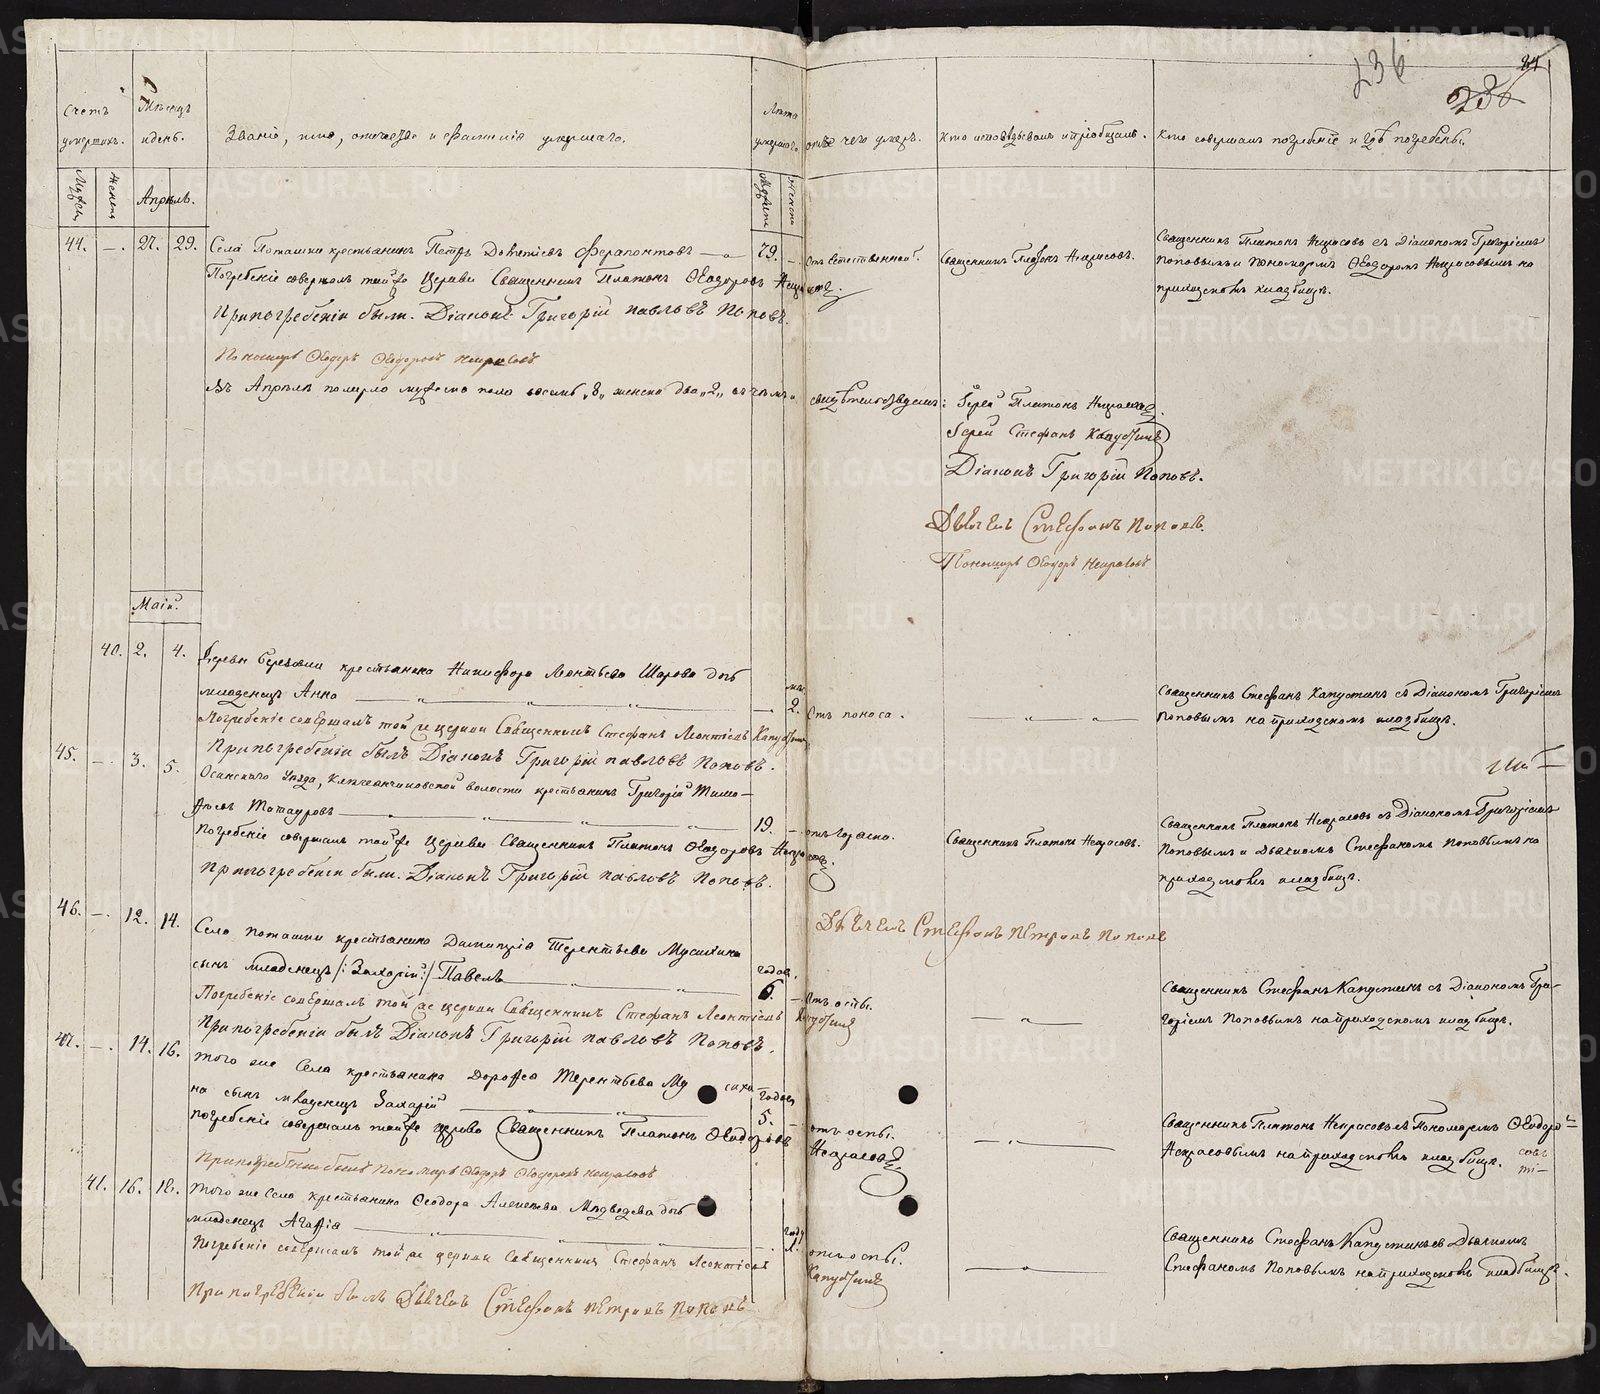 236
Счетъ умершихъ.
Мѣсяцъ и день.
Званіе, имя, отчество и фамилія умершаго.
Лѣта умершаго
отъ чего умеръ.
Кто исповѣдывалъ и пріобщалъ.
Кто совершалъ погребеніе и гдѣ погребены.
Апрѣль.
44. —. 27. 29. Села Поташки крестьянинъ Петръ Доментіевъ Ферапонтовъ — 79. —
Отъ естественной.
Священникъ Платонъ Некрасовъ.
Священникъ Платонъ Некрасовъ съ Діакономъ Григоріемъ
Поповымъ и Пономаремъ Ѳеодоромъ Некрасовымъ на
приходскомъ кладбищѣ.
Погребеніе совершалъ той же Церкви Священникъ Платонъ Ѳеодоровъ Некрасовъ.
При погребеніи были. Діаконъ Григорій Павловъ Поповъ.
Пономарь Ѳеодоръ Ѳеодоровъ Некрасовъ
Въ Апрѣлѣ померло мужеска пола восемь „8„ женска два „2„ въ чемъ и
свидѣтельствуемъ:
Іерей Платонъ Некрасовъ.
Іерей Стефанъ Капустинъ
Діаконъ Григорій Поповъ.
Дьячекъ Стефанъ Поповъ.
Пономарь Ѳеодоръ Некрасовъ
Маій.
40. 2. 4. Деревни Березовки крестьянина Никифора Леонтьева Шарова дочь
младенецъ Анна — 2.
Отъ поноса.
Священникъ Стефанъ Капустинъ съ Діакономъ Григоріемъ
Поповымъ на приходскомъ кладбищѣ.
Погребеніе совершалъ той же церкви Священникъ Стефанъ Леонтіевъ Капустинъ
При погребеніи былъ Діаконъ Григорій Павловъ Поповъ.
45. —. 3. 5. Осинскаго Уѣзда, волости крестьянинъ Григорій Тимо-
ѳеевъ — 19. —
отъ горячки.
Священникъ Платонъ Некрасовъ.
Священникъ Платонъ Некрасовъ съ Діакономъ Григоріемъ
Поповымъ и Дьячкомъ Стефаномъ Поповымъ на
приходскомъ кладбищѣ.
Погребеніе совершалъ той же Церкви Священникъ Платонъ Ѳеодоровъ Некрасовъ.
При погребеніи были. Діаконъ Григорій Павловъ Поповъ.
Дьячекъ Стефанъ Петровъ Поповъ
46. —. 12. 14. Села Поташки крестьянина Терентьева Мусихина
сынъ младенецъ /: Захарій :/ Павелъ — годовъ 6. —
Отъ оспы.
Священникъ Стефанъ Капустинъ съ Діакономъ Гри-
горіемъ Поповымъ на приходскомъ кладбищѣ.
Погребеніе совершалъ той же церкви Священникъ Стефанъ Леонтіевъ Капустинъ
При погребеніи былъ Діаконъ Григорій Павловъ Поповъ.
47. —. 14. 16. Того же Села крестьянина Дороѳея Терентьева Мусихи-
на сынъ младенецъ Захарій — годовъ 5. —
отъ оспы.
Священникъ Платонъ Некрасовъ съ Пономаремъ Ѳеодоро-
Некрасовымъ на приходскомъ кладбищѣ.
Погребеніе совершалъ той же церкви Священникъ Платонъ Ѳеодоровъ
Некрасовъ.
При погребеніи былъ Пономарь Ѳеодоръ Ѳеодоровъ Некрасовъ
41. 16. 18. Того же Села крестьянина Ѳеодора Алексѣева Медвѣдева дочь
младенецъ Агафія — году 1.
отъ оспы.
Священникъ Стефанъ Капустинъ съ Дьячкомъ
Стефаномъ Поповымъ на приходскомъ кладбищѣ.
Погребеніе совершалъ той же церкви Священникъ Стефанъ Леонтіевъ
Капустинъ
При погребеніи былъ Дьячекъ Стефанъ Петровъ Поповъ
METRIKI.GASO-URAL.RU